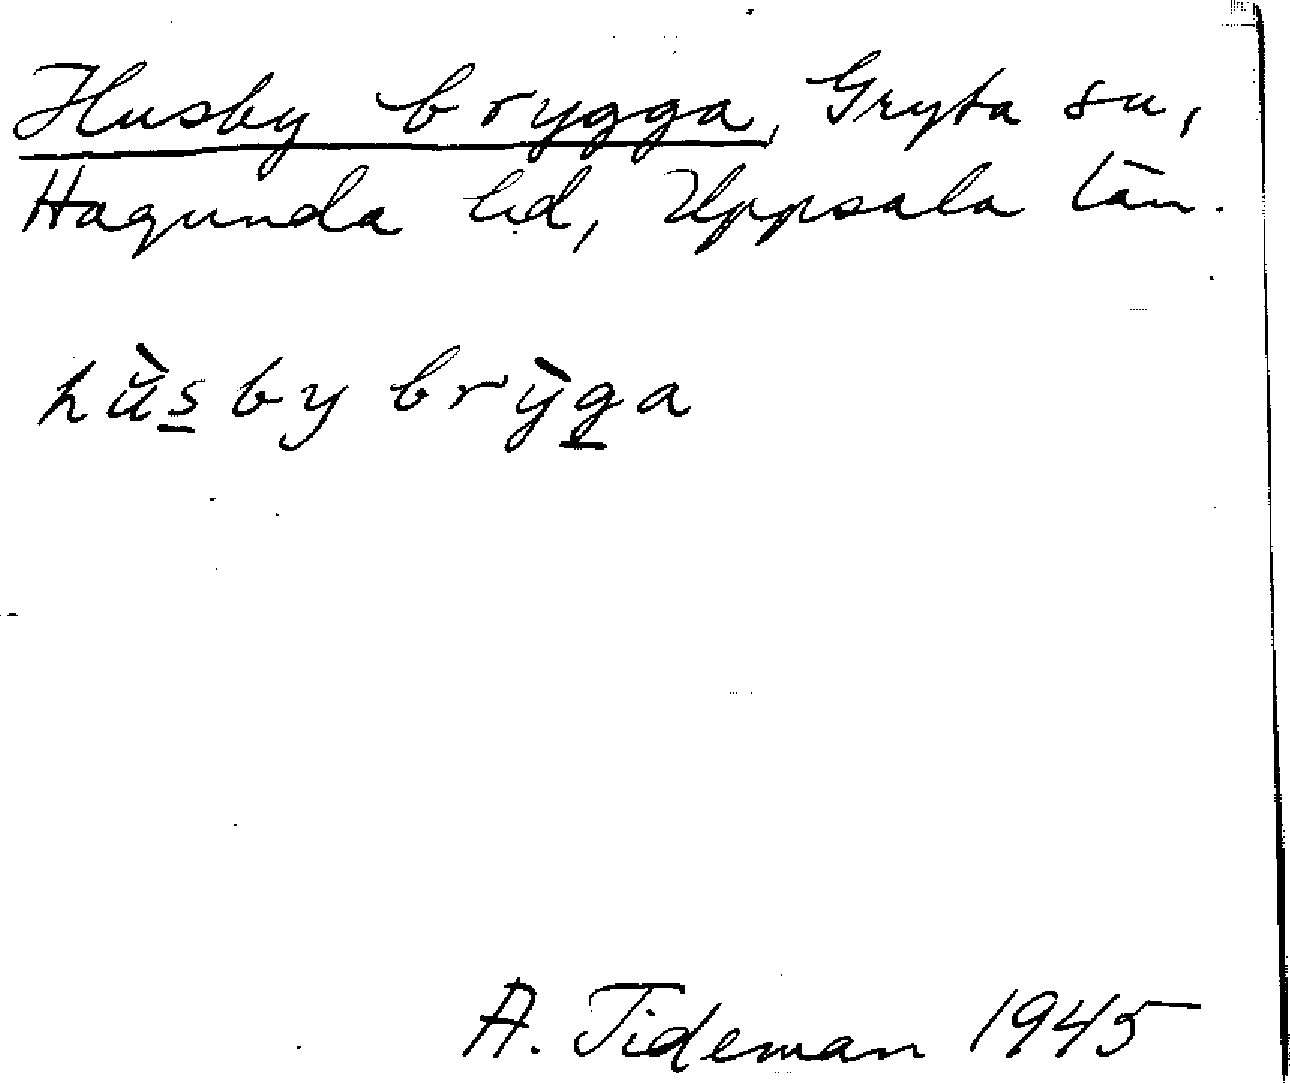 Husby brygga, Gryta sn,
Hagunda hd, Uppsala län.
hùs̲by brỳg̲a
A. Tideman 1945